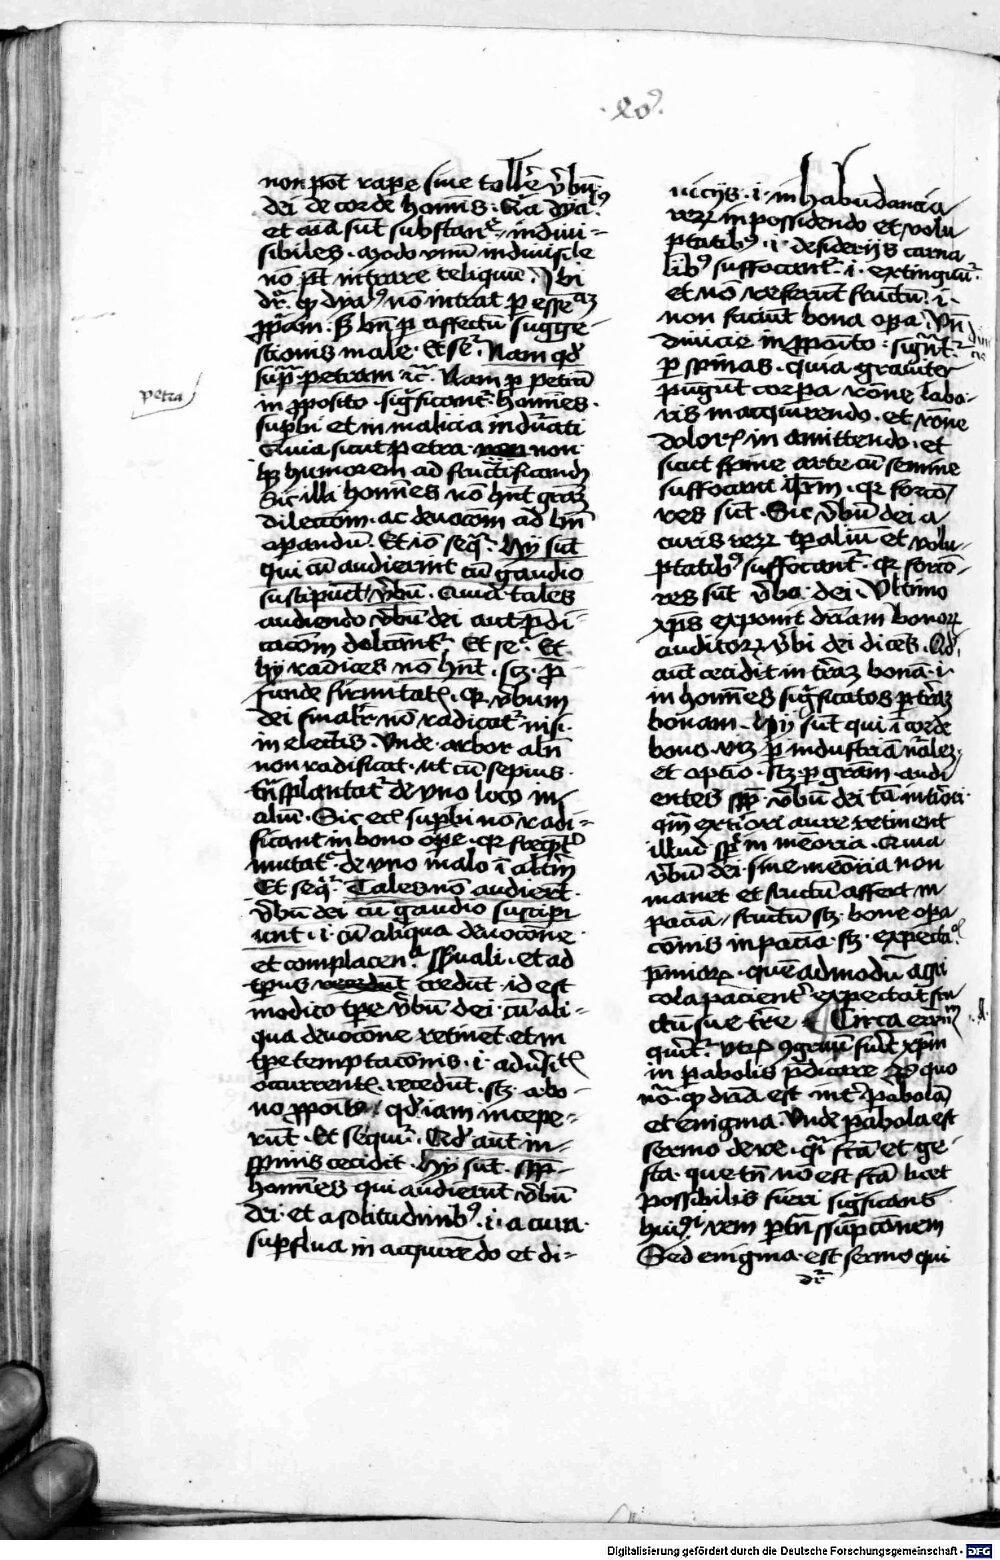 non pot rape siue tolle vbum
dei de corde hominis. Quia dyal9
et aia sut substan indiui-
sibiles. modo vnu indiuisible
no pt intrare reliquu. Vbi
dr. q dyal9 no intrat p essecia
ppam. s bn p affectu sugge-
stionis male. Et se. Nam qd
sup petram rc. Nam p petra
petra
in pposito significant homines
supbi et in malicia indurati
Quia sicut petra non
hz humorem ad fructificand
Sic illi homines no hnt graz
dileccom. ac deuocom ad bn
opandu. Et io seq. Hy sut
qui cu audierint cu gaudio
suscipiut vbu. Quia tales
audiendo vbu dei aut pdi-
cacom delcant. Et se. Et
hy radices no hnt. sz p
funde firmitat. q vbum
dei finalr no radicat nisi
in electis. Vnde arbor aln
non radificat. ut cu sepius
tnsplantat de vno loco in
aliu. Sic eci supbi no radi-
ficant in bono ope. q freqnt
mutat de vno malo i altm
Et seq. Tales no audiert
vbu dei cu gaudio suscipi
unt. i. cu aliqua deuocone
et complacen spuali. et ad
tpus credut id est
modico tpe vbu dei cu ali-
qua deuocone retinet et in
tpe temptacois. i. aduersit
ocurrent recedut. sz a bo-
no pposito qd iam incepe-
rut. Et sequi. Qd aut in
spinis cecidit. Hy sut. ssp
homines qui audierut vbu
dei et a solitudinib9. i. a cura
supflua in acquiredo et di-
uicijs. i. in habundancia
rerz in possidendo et volu
ptatib9. i. desiderijs carna
lib9 suffocant. i. extinguut
et no referut fructu. i.
non faciut bona opa. Vn
diuicie in pposito signnt
p spinas. quia grauiter
pugut corpa rone labo-
ris in acquirendo. et rone
dolor in amittendo. et
sicut spine arte cu semine
suffocant ipm. q forcio
res sut. Sic vbu dei a
curis rerz tpaliu et volu-
ptatib9 suffocant. q forcio-
res sut vbo dei. Vltimo
xps exponit driam bonorz
auditorz vbi dei dices. Qd
aut cecidit in traz bona. i
in homines significatos p traz
bonam. Hy sut qui i corde
bono. viz p industria nalez
et optio. sz p gram. audi
entes ssp vbu dei ta intiori
qm extiori aure retinent
illud sp in meoria. Quia
vbu dei sine meoria non
manet et fructu affert in
pacia. fructu sz bone opa
conis in pacia. sz expecta
pmior. quemadmodu agri
cola pacient expectat fru
ctu sue tre Circa ewm
querit. vtr 9gruu fuit xpm
in pabolis pdicare Pro quo
no. q dria est int pabola
et enigma. Vnde pabola est
sermo de re. qsi fca et ge-
sta. que tn no est fca licet
possibilis fieri significans
hui9i rem ptn ssupconem
Sed enigma est sermo qui
dr
Digitalisierung gefördert durch die Deutsche Forschungsgemeinschaft - DFG